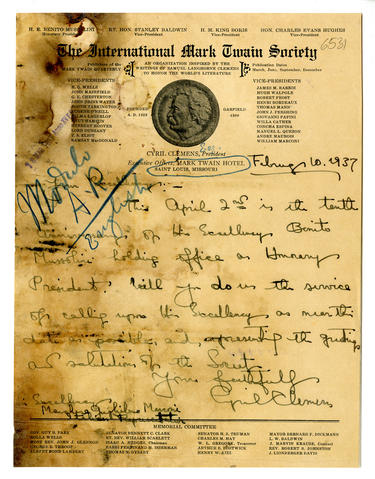 H. E. BENITO MUSSOLINI
Honorary President
RT. HON. STANLEY BALDWIN
Vice-President
H. M. KING BORIS
Vice-President
HON. CHARLES EVANS HUGHES
Vice-President
6531
The International Mark Twain Society
Publishers of the
MARK TWAIN QUARTERLY
AN ORGANIZATION INSPIRED BY THE
WRITINGS OF SAMUEL LANGHORNE CLEMENS
TO HONOR THE WORLD'S LITERATURE
Publication Dates
March, June, September, December
VICE-PRESIDENTS
H. G. WELLS
JOHN MASEFIELD
G. K. CHESTERTON
JOHN DRINKWATER
BOOTH TARKINGTON
SELMA LAGERLOF
KNUT HAMSUN
LORD DUNSANY
RAMSAY MacDONALD
FOUNDED
A. D. 1923
VICE-PRESIDENTS
JAMES M. BARRIE
HUGH WALPOLE
ROBERT FROST
HENRI BORDEAUX
THOMAS MANN
JOHN J. PERSHING
GIOVANNI PAPINI
WILLA CATHER
CONCHA ESPINA
MANUEL L. QUEZON
ANDRE MAUROIS
WILLIAM MARCONI
CYRIL CLEMENS, President
Executive Offices, MARK TWAIN HOTEL
SAINT LOUIS, MISSOURI
February 10, 1937
Modulo
A
English
This April 2nd is the tenth
anniversary of His Excellency Benito
Mussolini holding office as Honorary
President! Will you do us the service
of calling upon His Excellency as near this
date as possible, and expressing the greetings
and salutations of the Society
Yours faithfully
Cyril Clemens
MEMORIAL COMMITTEE
GOV. GUY B. PARK
ROLLA WELLS
MOST REV. JOHN J. GLENNON
GEORGE S. TERHOOP
ALBERT BOND LAMBERT
SENATOR BENNETT C. CLARK
RT. REV. WILLIAM SCARLETT
ISAAC A. HEDGES, Chairman
RABBI FERDINAND M. ISSERMAN
SENATOR H. S. TRUMAN
CHARLES M. HAY
W. L. GREGORY, Treasurer
HENRY W. KIEL
MAYOR BERNARD F. DICKMANN
L. W. BALDWIN
J. MARVIN KRAUSE, Counsel
REV. ROBERT S. JOHNSTON
J. LIONBERGER DAVIS